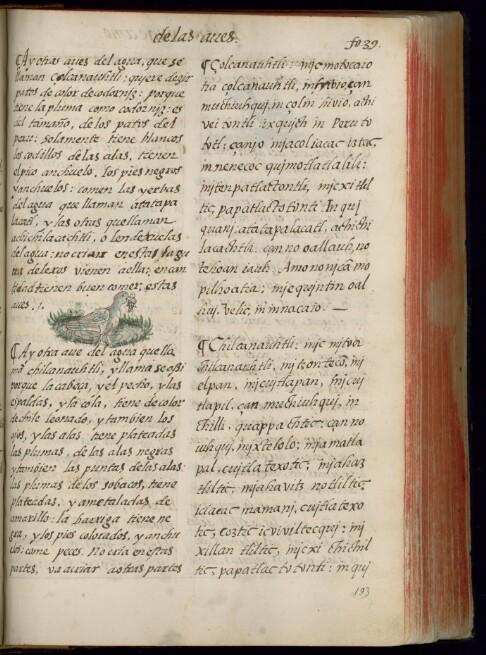 de las aues.
fo. 39.
¶ Ay otras aues del agua, que se
llaman Colcanauhtli: quiere dezir
patos de color de codorniz: porque
tiene la pluma como codorniz: es
del tamaño, de los patos del
peru: solamente tiene blancos
los codillos de las alas, tienen
el pico anchuelo, los pies negros
yanchuelos: comen las yerbas
del agua que llaman atatapa
lacatl, y las otras que llaman
achichilacachtli, o lendexuelas
del agua: no crian en esta lagu
na de lexos vienen a ella: en can
tidad tienen buen comer, estas
aues.
¶ Ay otra aue del agua que lla
mã chilcanauhtli, y llamase assi
porque la cabeça, y el pecho, y las
espaldas, y la cola, tiene de color
de chile leonado, y tambien los
ojos, y las alas tiene plateadas
las plumas, de las alas negras
y tambien las puntas de las alas:
las plumas de los sobacos, tiene
plateadas, y ametaladas de
amarillo: la barriga tiene ne
gra, y los pies colorados, y anchu
elos: come peces. No cria en estas
partes, va a criar a otras partes
¶ Colcanauhtli: injc motocaio
tia colcanauhtli, in jhvio, çan
muchiuhqui, in çolin jhvio, achi
vei totoli: ixquich in Peru to
totl: çanjo in jacoliacac iztac,
in nenecoc quimotlatlalili:
injten patlatontli, injcxi tlil
tic, papatlactotonti. In qui
quanj, atatapalacatl, achichi
lacachtli. can no oallauh, no
tehoan iauh. Amo no njcã mo
pilhoatia; injequintin oal
huj. Velic, in innacaio. —
¶ Chilcanauhtli: injc mitoa
chilcanauhtli, in jtzontecõ, in j
elpan, in jcuitlapan, in jcui
tlapil, çan muchiuhqui, in
chilli. quappachtic: çan no
iuhqui, in jxtelolo; in jamatla
pal, cuitlatexotic; in jahaz
tliltic, in jahavitz no tliltic
iciacac mamanj, cuitlatexo
tic, coztic icviviltecqui: in j
xillan tliltic, injcxi chichil
tic, papatlactotonti: in qui
193